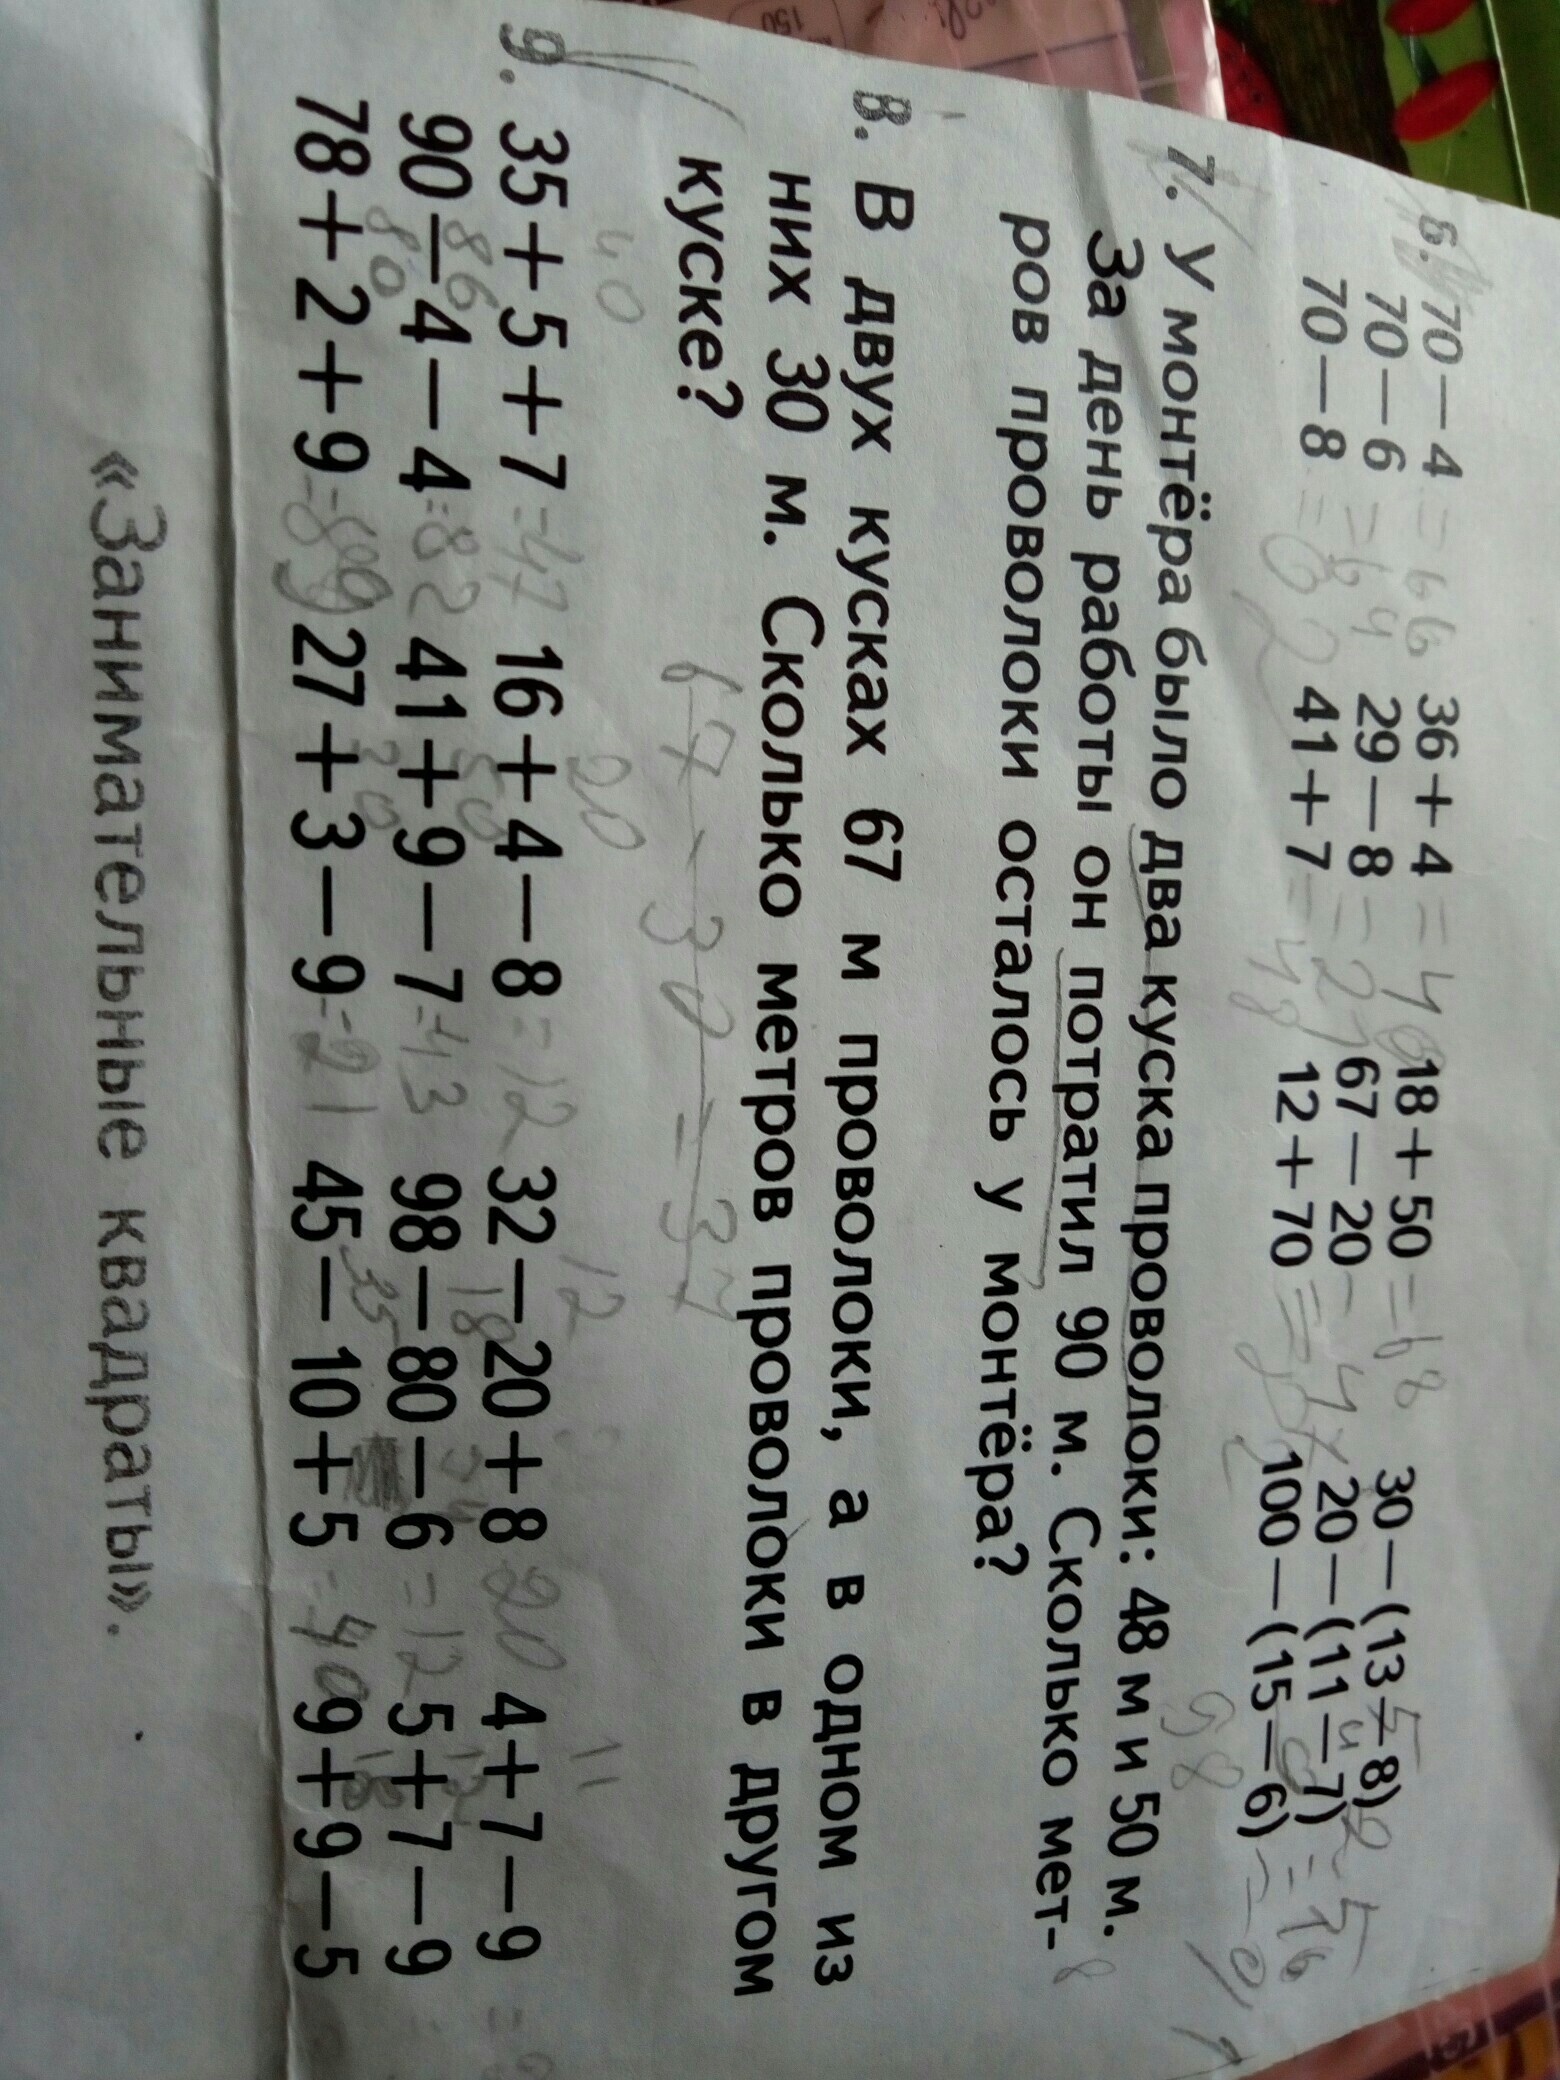 6. 70−4=66 36+4=40 18+50=68 30−(13−8)
70−6=64 29−8=21 67−20=47 20−(11−7)=16
70−8=62 41+7=48 12+70= 100−(15−6)=91
98
7. У монтёра было два куска проволоки: 48 м и 50 м.
За день работы он потратил 90 м. Сколько мет-
ров проволоки осталось у монтёра?
8
8. В двух кусках 67 м проволоки, а в одном из
них 30 м. Сколько метров проволоки в другом
куске?
67−30=37
40 20 12 11
9. 35+5+7=47 16+4−8=12 32−20+8 20 4+7−9
86 50 18 12
90−4−4=82 41+9−7=43 98−80−6=12 5+7−9
80 30 35 18
78+2+9=89 27+3−9=21 45−10+5=40 9+9−5
«Занимательные квадраты».
150